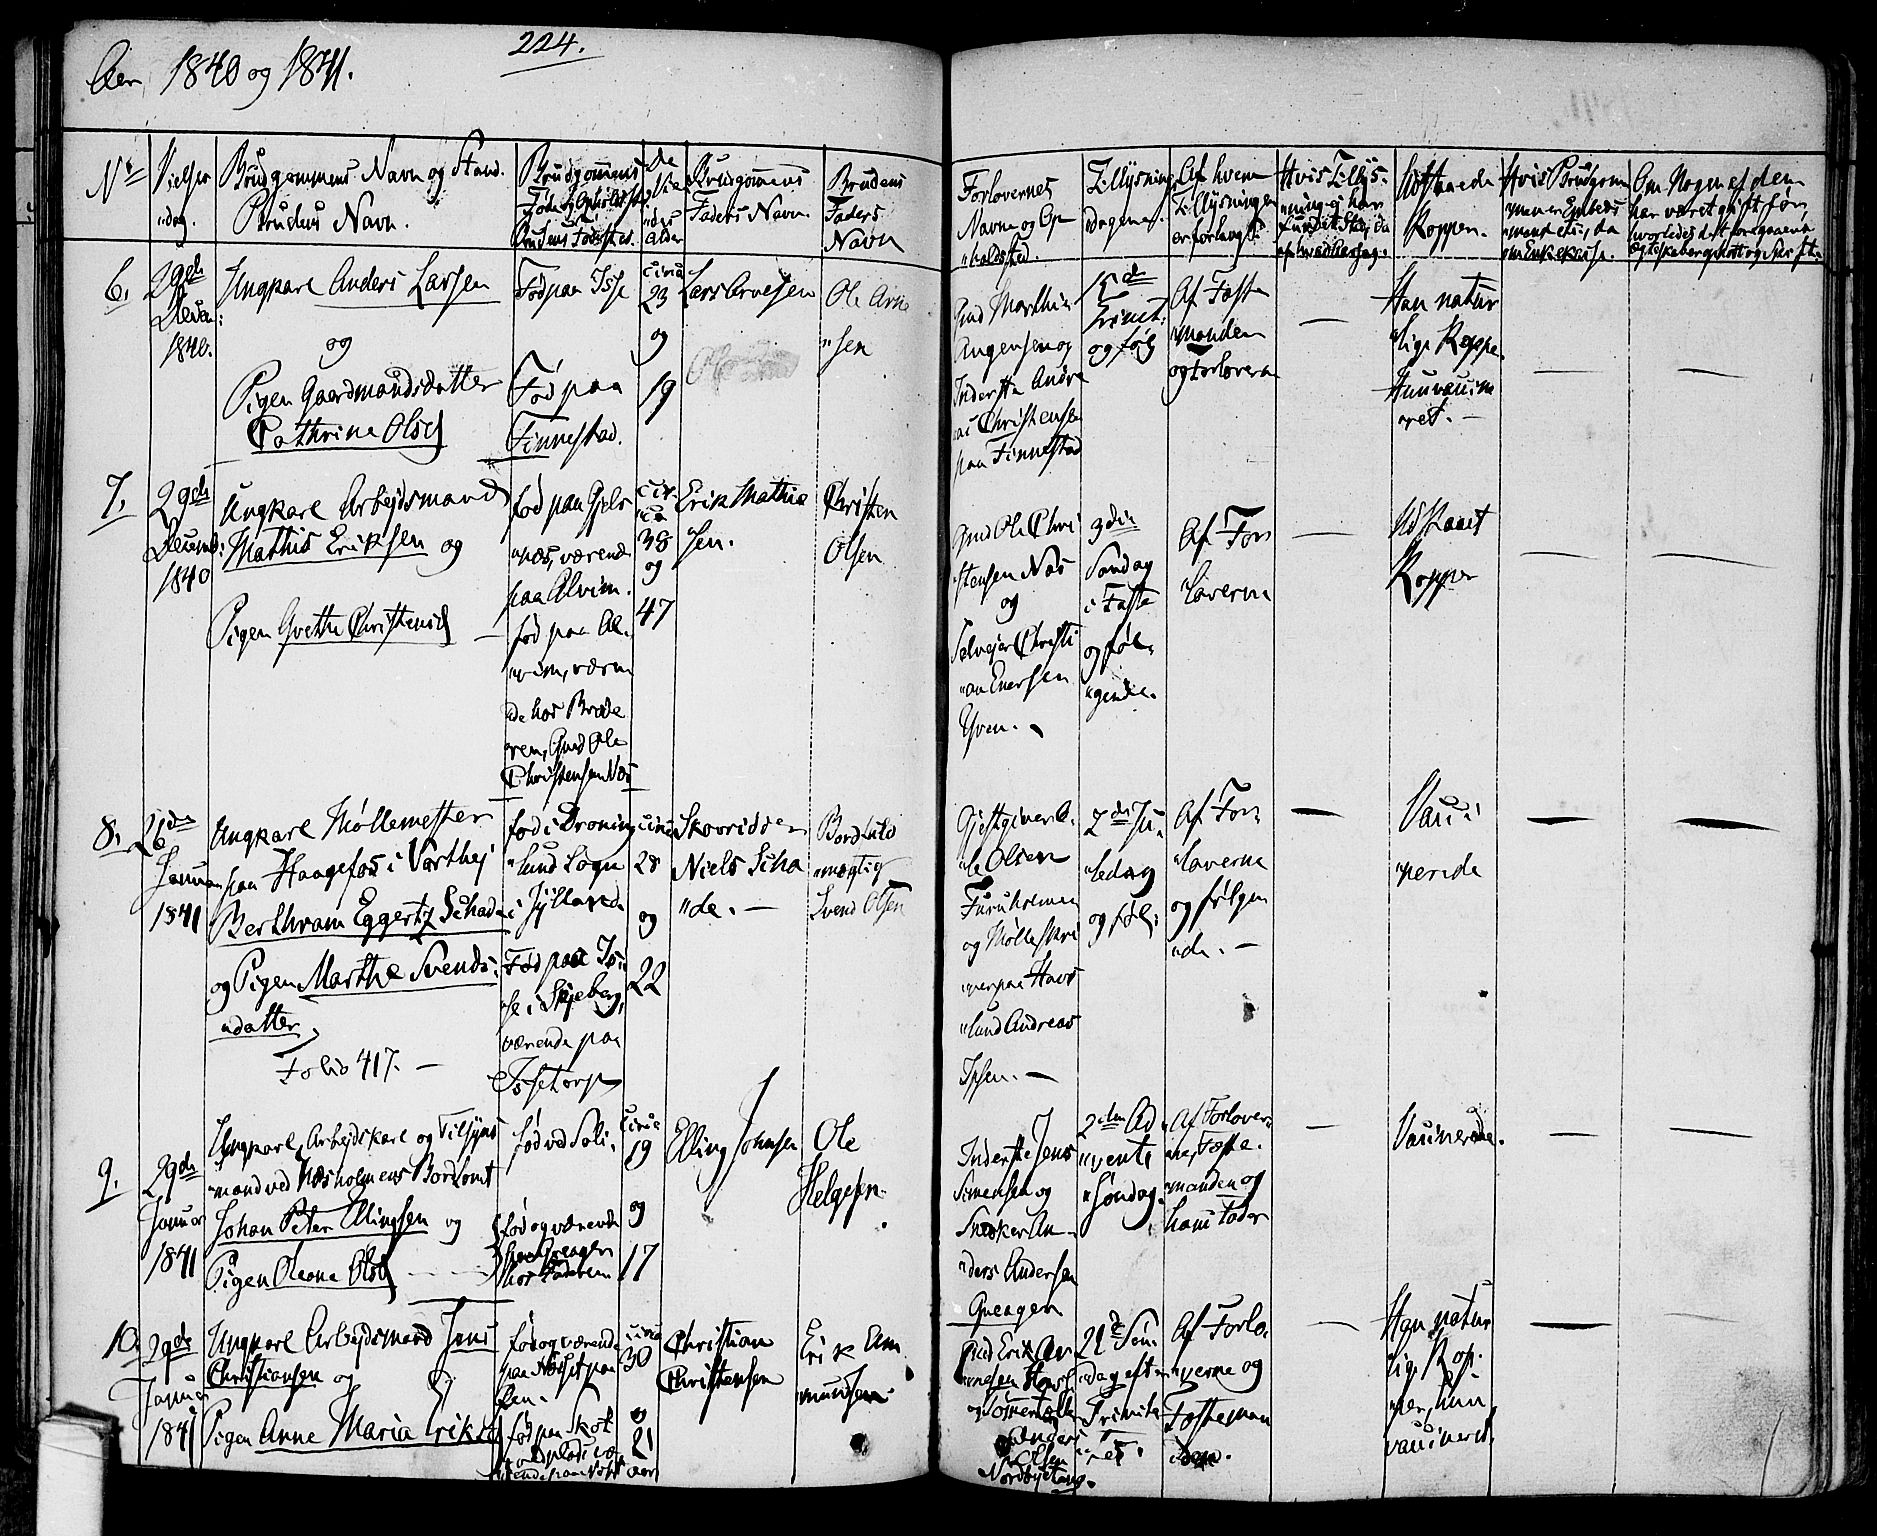 224.
Aar 1840 og 1841.
No
Vielses
"dag.
Brudgommens Navn og Stand.
Brudens Navn.
Brudgommens
Brudens Fødested.
alder
Brudgommens
Faders Navn.
Brudens
Faders
Navn
Forlovernes
Navne og Op
"holdsted.
Tillysnings
dagene.
Af hvem
Tillysningen
er forlangt.
Hvis Tillys-
"ning ei har
fundet Sted, da
af hvad Aarsag.
Udstaaede
Kopper.
Hvis Brudgom
men er Enkeds
"mand etc., da
om Enkekasse.
Om Nogen af dem
har været gift før,
hvorledes det foregaaende
6.
29de
Decem:
1840.
Ungkarl Anders Larsen
og
Pigen Gaardmandsdatter
Cathrine Olsd
Fød paa Isse
Fød paa
Finnestad.
circa
23
og
19
Lars Arvesen
Ole Arne
"sen
Gmd Marthin
Angensen og
Inderste Andre
as Christensen
paa Finnestad
15de
Trinit:
og følg
Af Fæste
manden
og Forloverne
Han natur
"lige Kopper.
Hun vacine
ret.
7.
29de
Decemb:
1840
Ungkarl Arbejdsmand
Mathis Eriksen og
Pigen Grethe Christensd
fød paa Gjels
"næs, værende
paa Alvim.
fød paa Al-
"vim, væren
de hos Brode
ren, Gmd Ole
Christensen Næs
cir-
ca
38
og
47
Erik Mathie
sen.
Christen
Olsen
Gmd Ole Chri
stensen Næs
og
Selvejer Christi
"an Enersen
Yven.
3die
Søndag
i Faste
og føl-
"gende.
Af For
"loverne
Udstaaet
Kopper
8.
26de
Januar
1841
Ungkarl Møllemester
paa Haagefos i Varthej
Berthram Eggertz Schade
og Pigen Marthe Svends-
"datter,
Folio 417.
fød i Droning
"lund Sogn
i Jylland
Fød paa Is-
"se i Skjeberg,
værende paa
Issetorp
circa
28
og
22
Skovridder
Niels Scha
"de.
Bordtuld
"mægtig
Svend Olsen
Gjestgiver O-
"le Olsen
Furuholmen
og Mølleskri
ver paa Hafs
"lund Andreas
Ipsen.
2den Ju-
"ledag
og føl:
Af For-
"loverne
og følgen
"de.
Vacci-
"nerede
9.
29de
Januar
1841
Ungkarl, Arbejdskarl og Tilsyns
"mand ved Næsholmens Bordtomt
Johan Peter Ellingsen og
Pigen Oleane Olsd
fød ved Soli-
fød og værende
paa Greager
hos Faderen
circa
19
og
17
Elling Johnsen
Ole
Helgesen.
Inderste Jens
Simensen og
Snedker An-
"ders Andersen
Greager
2den Ad
"vents
"Søndag.
Af Forlover
ne, Fæste-
manden og
hans Fader
Vacinerede.
10.
29de
Januar
1841
Ungkarl Arbejdsmand Jens
Christiansen og
Pigen Anne Maria Eriksd
fød og værende
sen.
fød paa Skok
circa
30
og
21
aar
Christian
Christensen
Erik Am
"mundsen.
Gmd Erik An
Anders
Olsen
Nordbytang.
21de Søn
"dag eft
Trinita
"tes.
Af Forlo-
"verne og
Fæsteman
"den.
Han natur
"lige Kop-
per, hun
vacineret.